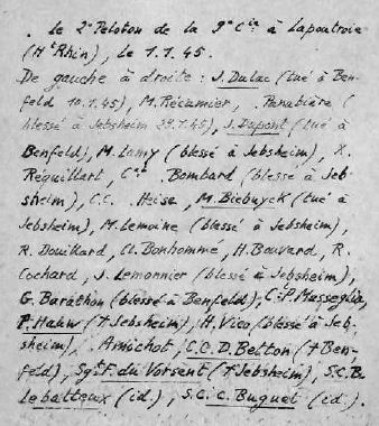 . Le 2e Peloton de la 9e Cie à Lapoutroie
(Ht Rhin), le 1.1.45.
De gauche à droite : J. Dulac (tué à Ben-
feld 10.1.45), M. Récamier, . Panabière (
blessé à Jebsheim 28.1.45), J. Dupont (tué à
Benfeld), M. Lamy (blessé à Jebsheim), X.
Réquillart, Bombard (blessé à Jeb-
sheim), C.C. Heise, M. Biebuyck (tué à
Jebsheim), M. Lemoine (blessé à Jebsheim),
R. Douillard, Cl. Bonhommé, H. Bouvard, R.
Cochard, J. Lemonnier (blessé à Jebsheim),
G. Barathon (blessé à Benfeld), C.P. Masseglia,
P. Hahn († Jebsheim), H. Vico (blessé à Jeb-
sheim), . Amichot, C.C. D. Betton († Ben-
feld), Sgt F. du Vorsent († Jebsheim), S.C. B.
Lebatteux (id.), S.C. C. Buguet (id.).